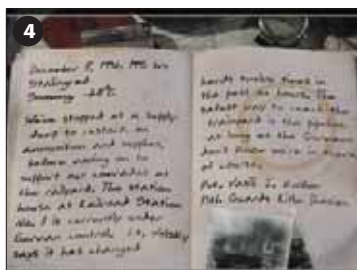 4
December 8, 1942,
Stalingrad
We've stopped at a supply
dump to restock on
ammunition and supplies,
before moving on to
support our comrades at
the railyard. The station
house at Railroad Station
No. 1 is currently under
German control.
says it has changed
hands twelve times in
the past six hours. The
safest way to reach the
trainyard is the pipeline
as long as the Germans
don't know we're in there
of course.
13th Guards Rifle Division